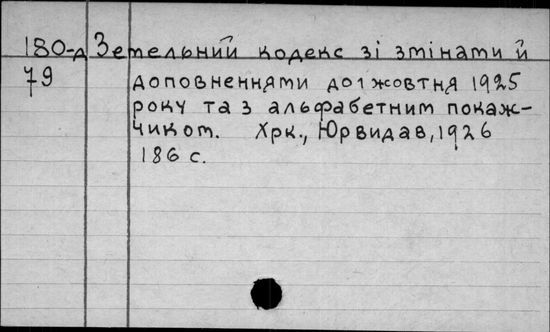 180-д Земельний кодекс зі змінами й
79 доповненнями до 1 жовтня 1925
року та з альфабетним покаж-
чиком. Хрк., Юрвидав, 1926
186 с.